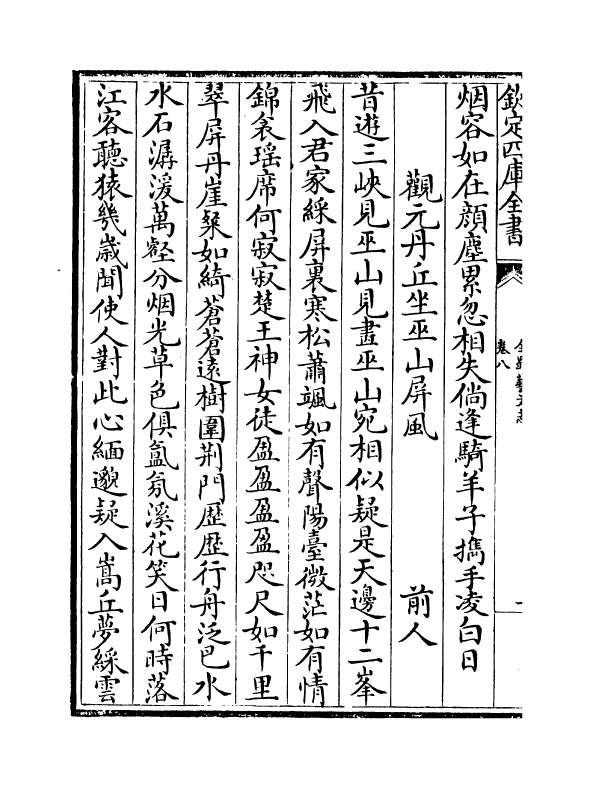 欽定四庫全書
全蜀藝文志
卷八
一
烟容如在顔塵累忽相失倘逢騎羊子擕手凌白日
觀元丹丘坐巫山屏風 前人
昔遊三峽見巫山見畫巫山宛相似疑是天邊十二峯
飛入君家綵屏裏寒松蕭颯如有聲陽臺微茫如有情
錦衾瑶席何寂寂楚王神女徒盈盈盈盈咫尺如千里
翠屏丹崖粲如綺蒼蒼遠樹圍荆門歴歴行舟泛巴水
水石潺湲萬壑分烟光草色俱氲氛溪花笑日何時落
江客聽猿幾歲聞使人對此心緬邈疑入嵩丘夢綵雲